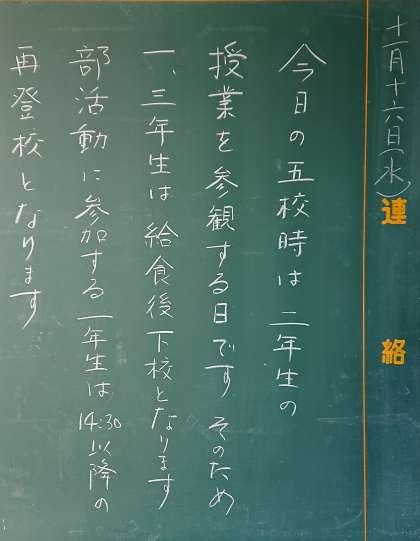 十一月十六日(水)
連絡
今日の五校時は二年生の
授業を参観する日です そのため
一、三年生は給食後下校となります
部活動に参加する一年生は14:30以降の
再登校となります